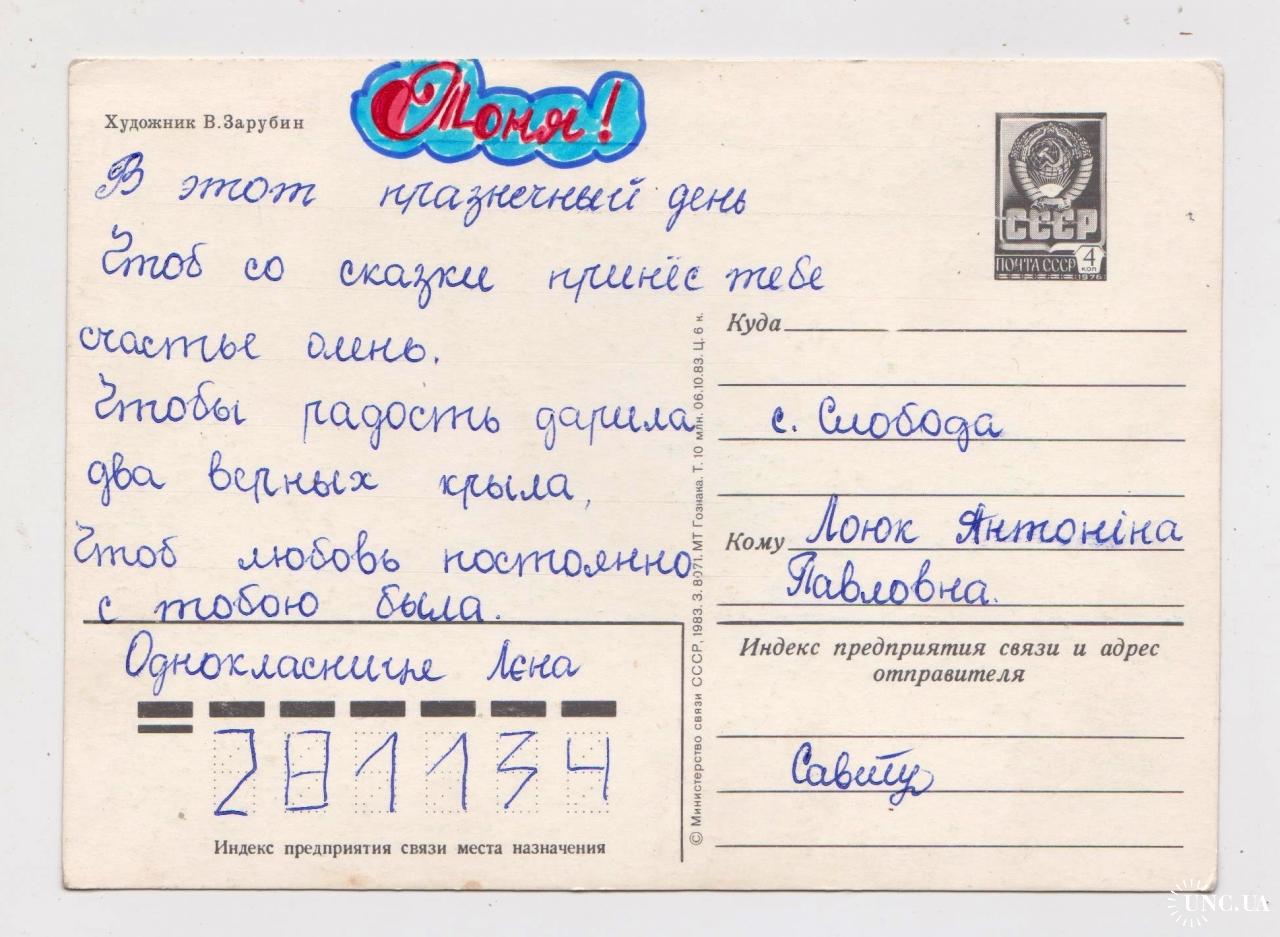 Художник В.Зарубин
Тоня!
В этот празнечный день
Чтоб со сказки принёс тебе
счастье олень.
Чтобы радость дарила
два верных крыла,
Чтоб любовь постоянно
с тобою была.
Однокласнице Лєна
281134
Индекс предприятия связи места назначения
© Министерство связи СССР, 1983. З. 8071. МТ Гознака. Т. 10 млн. 06.10.83. Ц. 6 к.
СССР
ПОЧТА СССР
4
КОП
1976
Куда
с. Слобода
Кому Лоюк Антоніна
Павловна.
Индекс предприятия связи и адрес
отправителя
UNC.UA